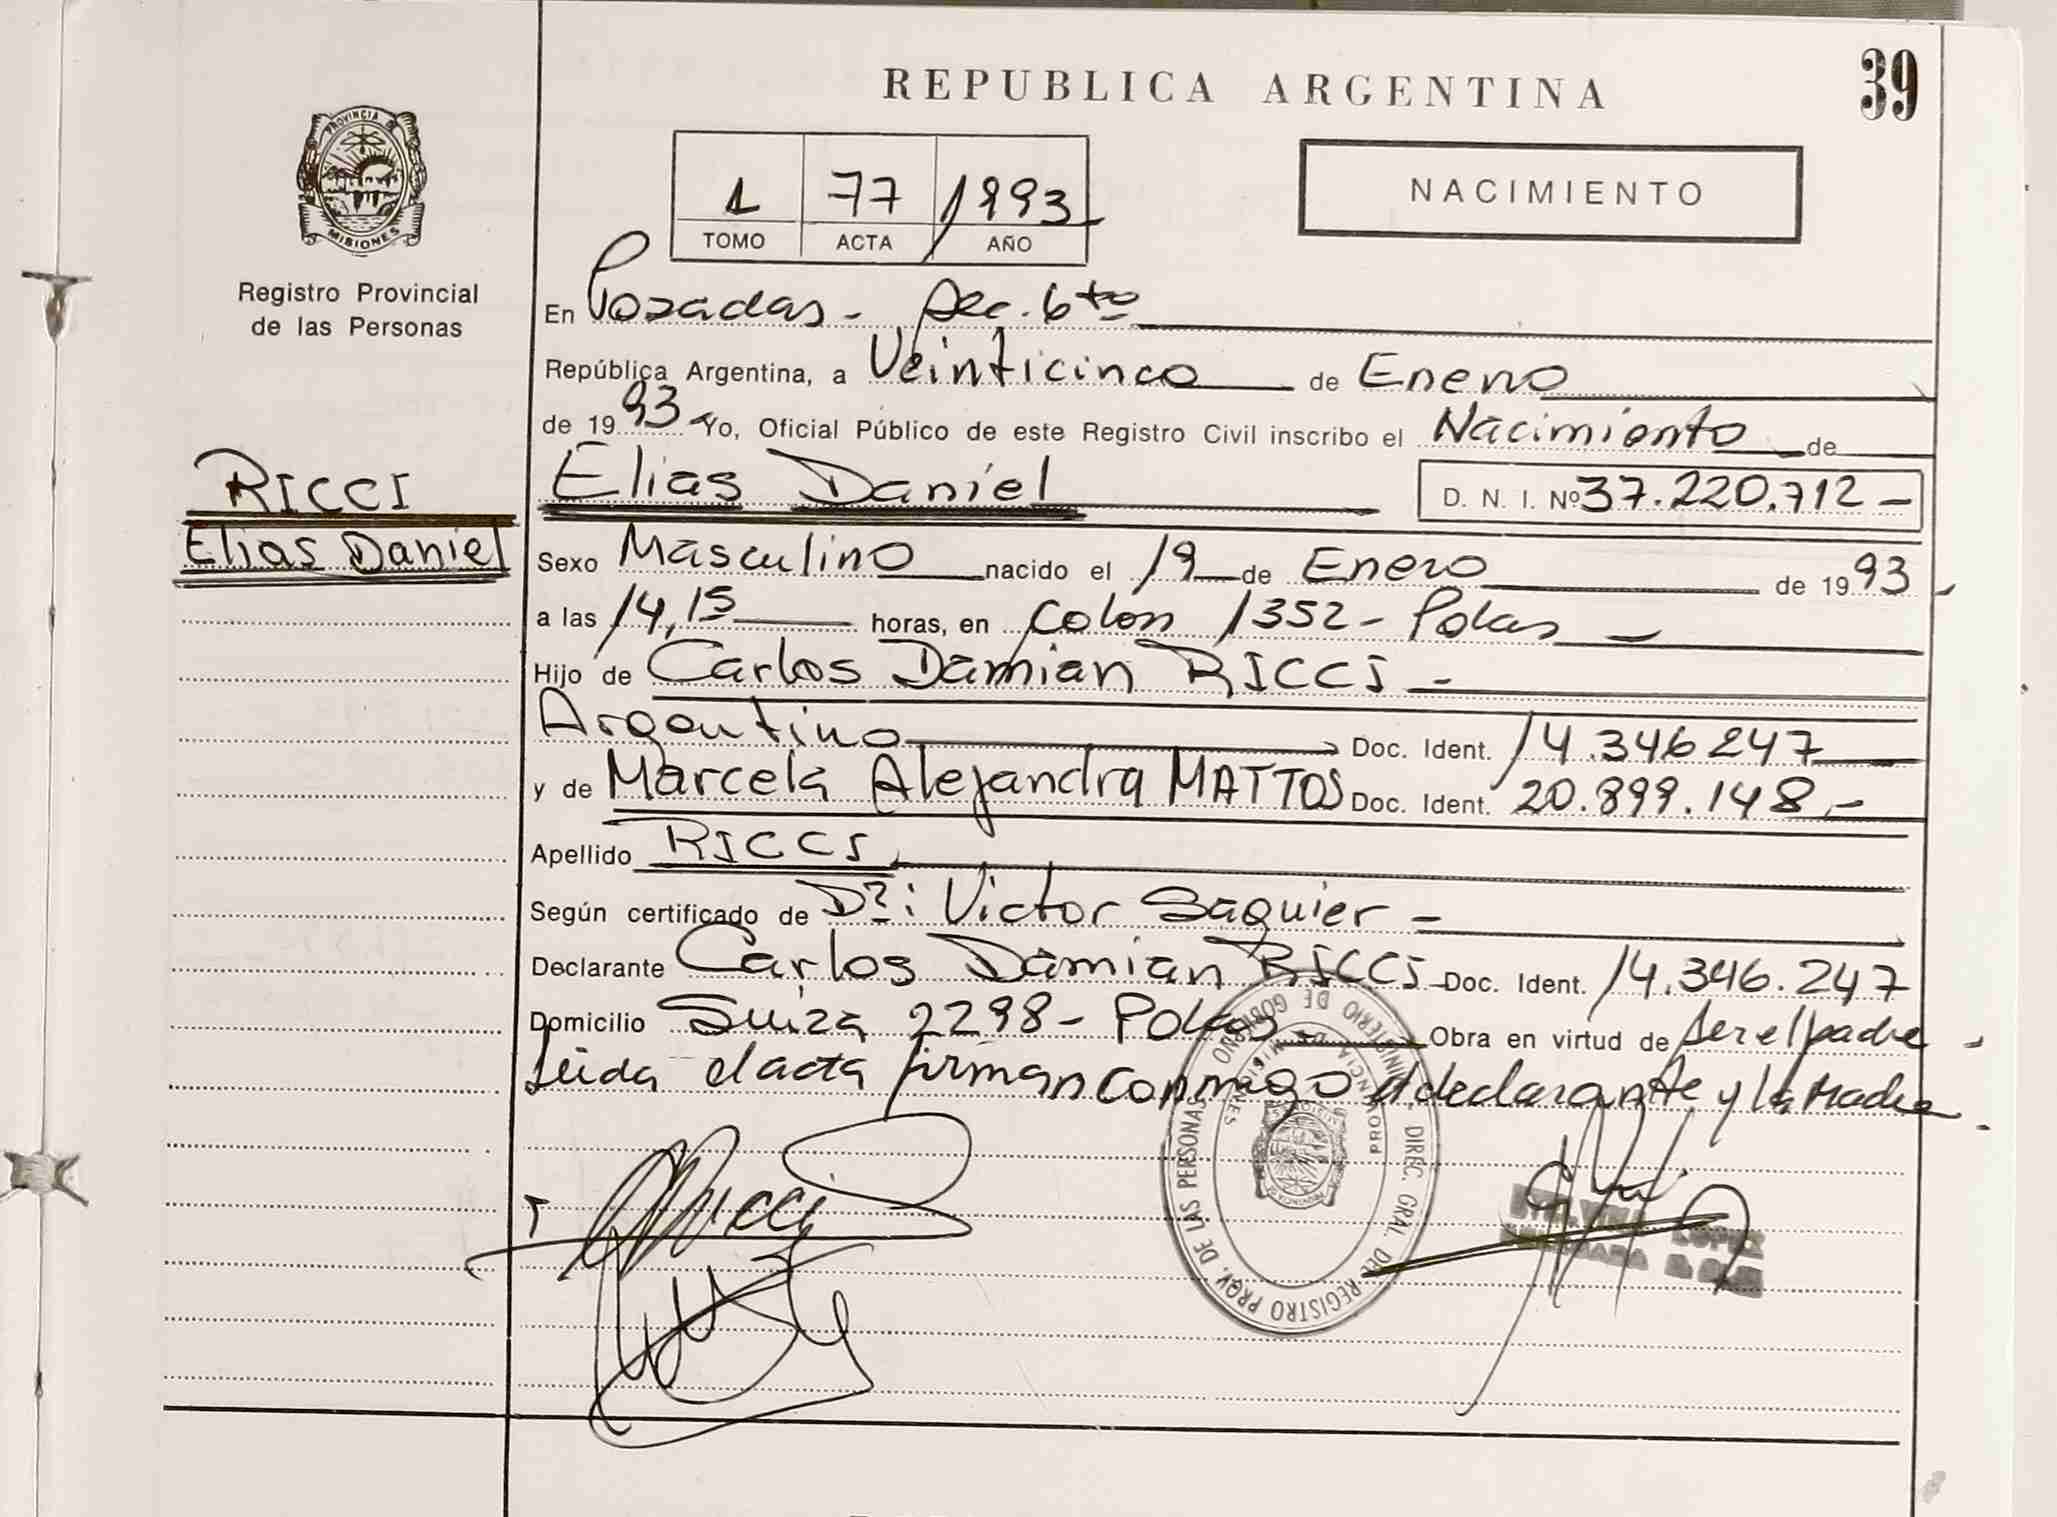 39
REPUBLICA ARGENTINA
NACIMIENTO
1 77 1993
TOMO ACTA AÑO
PROVINCIA DE
MISIONES
Registro Provincial
de las Personas
RICCI
Elias Daniel
En Posadas - Sec. 6to
República Argentina, a Veinticinco de Enero
de 1993 Yo, Oficial Público de este Registro Civil inscribo el Nacimiento de
Elias Daniel D. N. I. Nº 37.220.712 -
Sexo Masculino nacido el 19 de Enero de 1993
a las 14,15 horas, en Colon 1352 - Pdas
Hijo de Carlos Damian RICCI -
Argentino Doc. Ident. 14.346247
y de Marcela Alejandra MATTOS Doc. Ident. 20.899.148.-
Apellido RICCI
Según certificado de Dr: Victor Saguier -
Declarante Carlos Damian RICCI Doc. Ident. 14.346.247
Domicilio Suiza 2298 - Pdas - Obra en virtud de ser el padre -
Leida el acta firman conmigo el declarante y la Madre -
Ricci
MINISTERIO DE GOBIERNO
DIREC. GRAL. DEL REGISTRO PROV. DE LAS PERSONAS
PROVINCIA DE MISIONES
LOPEZ